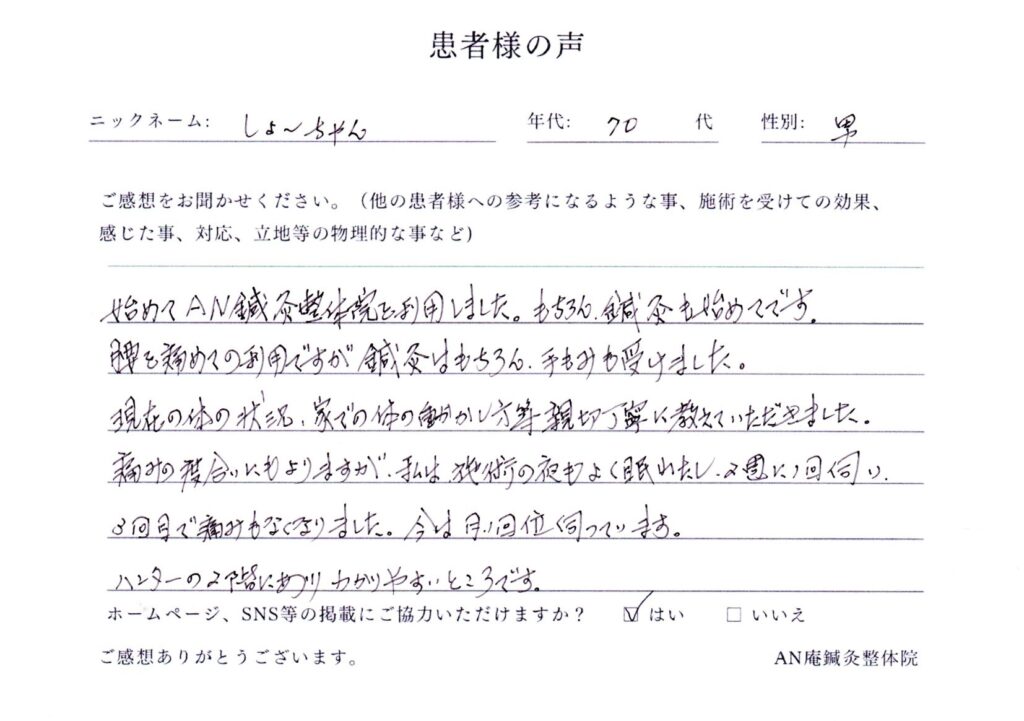 患者様の声
ニックネーム: しょ〜ちゃん 年代: 70 代 性別: 男
ご感想をお聞かせください。（他の患者様への参考になるような事、施術を受けての効果、
感じた事、対応、立地等の物理的な事など)
始めてAN鍼灸整体院を利用しました。もちろん、鍼灸も始めてです。
腰を痛めての利用ですが鍼灸はもちろん、手もみも受けました。
現在の体の状況、家での体の動かし方等親切丁寧に教えていただきました。
痛みの度合いにもよりますが、私は、施術の夜もよく眠れたし、2週に1回伺い、
3回目で痛みもなくなりました。今は月1回位伺っています。
ハンターの2階にありわかりやすいところです。
ホームページ、SNS等の掲載にご協力いただけますか？ ☑ はい □ いいえ
ご感想ありがとうございます。 AN庵鍼灸整体院